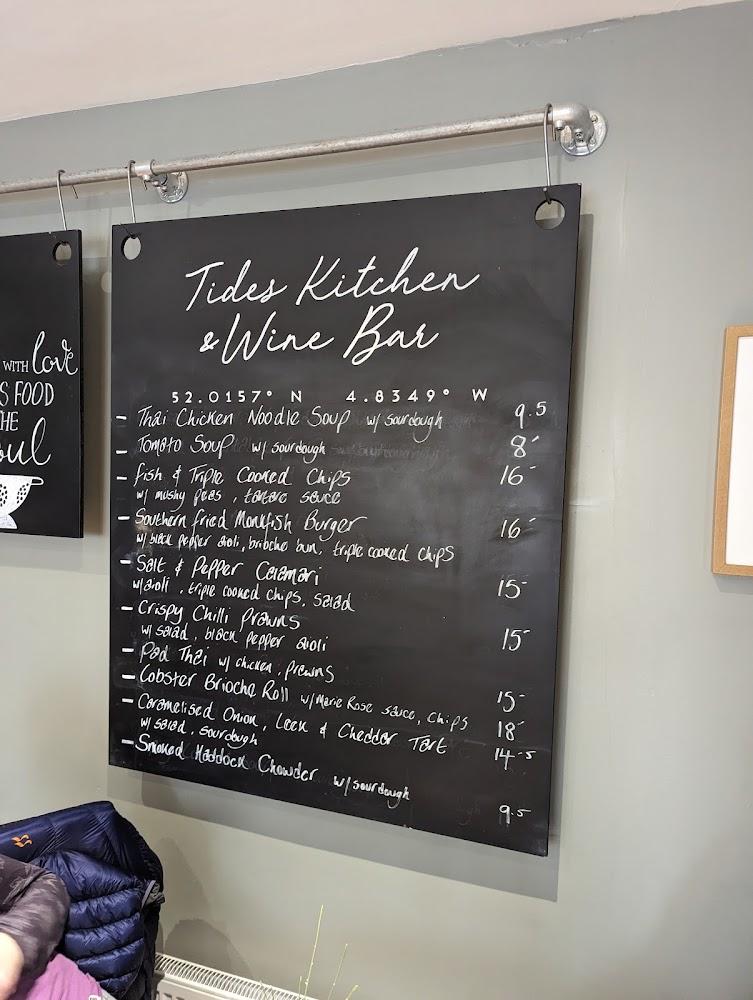 WITH love
S FOOD
HE
oul
Tides Kitchen
& Wine Bar
52.0157° N 4.8349° W
- Thai Chicken Noodle Soup w/ sourdough 9.5
- Tomato Soup w/ sourdough 8-
- Fish & Triple Cooked Chips 16-
w/ mushy peas, tartare sauce
- Southern fried Monkfish Burger 16-
w/ black pepper aioli, brioche bun, triple cooked chips
- Salt & Pepper Calamari 15-
w/ aioli, triple cooked chips, salad
- Crispy Chilli Prawns 15-
w/ salad, black pepper aioli
- Pad Thai w/ chicken, prawns 15-
- Lobster Brioche Roll w/ Marie Rose sauce, chips 18-
- Caramelised Onion, Leek & Cheddar Tart 14-5
w/ salad, sourdough
- Smoked Haddock Chowder w/ sourdough 9.5